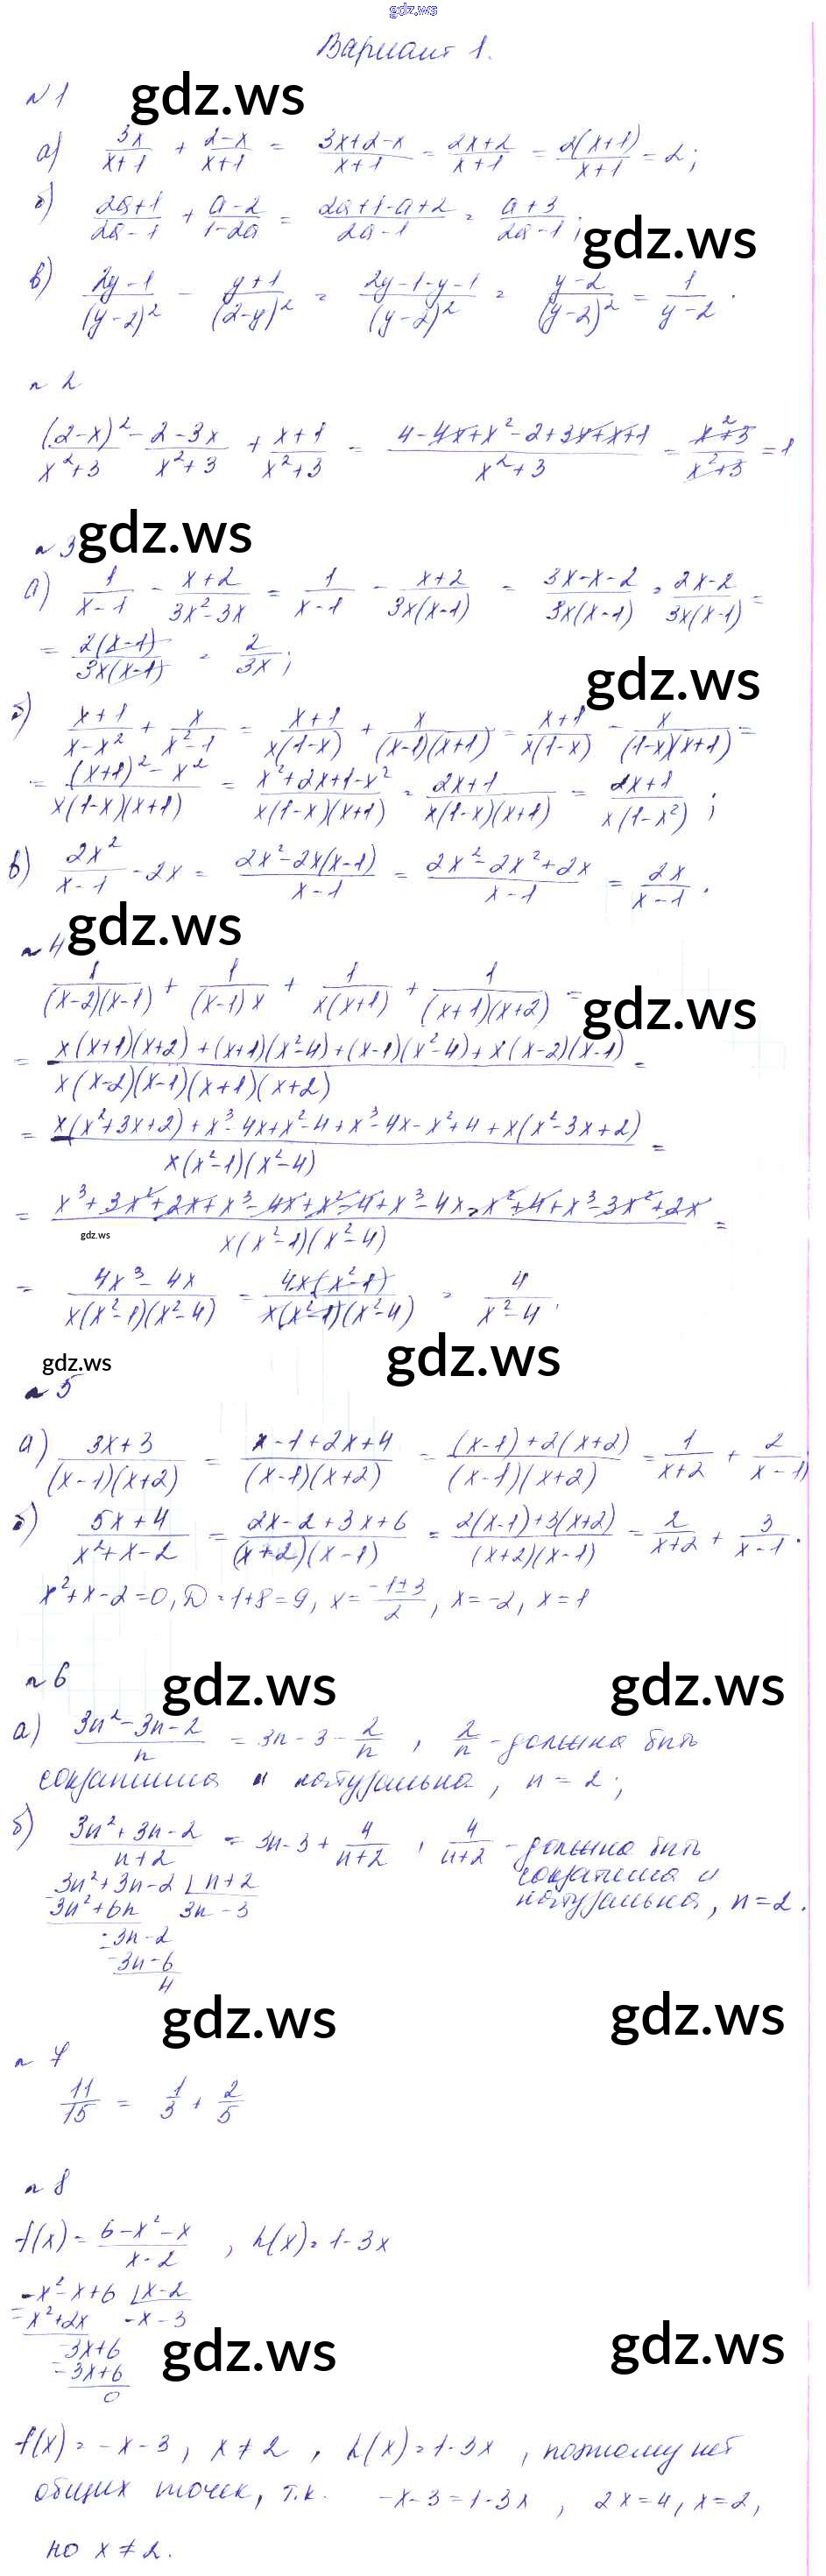 gdz.ws
Вариант 1.
№ 1 gdz.ws
а) 3x/(x+1) + (2-x)/(x+1) = (3x+2-x)/(x+1) = (2x+2)/(x+1) = 2(x+1)/(x+1) = 2;
б) (2a+1)/(2a-1) + (a-2)/(1-2a) = (2a+1-a+2)/(2a-1) = (a+3)/(2a-1); gdz.ws
в) (2y-1)/(y-2)² - (y+1)/(2-y)² = (2y-1-y-1)/(y-2)² = (y-2)/(y-2)² = 1/(y-2).
№ 2
(2-x)²/(x²+3) - (2-3x)/(x²+3) + (x+1)/(x²+3) = (4-4x+x²-2+3x+x+1)/(x²+3) = (x²+3)/(x²+3) = 1
№ 3 gdz.ws
а) 1/(x-1) - (x+2)/(3x²-3x) = 1/(x-1) - (x+2)/(3x(x-1)) = (3x-x-2)/(3x(x-1)) = (2x-2)/(3x(x-1)) =
= 2(x-1)/(3x(x-1)) = 2/(3x); gdz.ws
б) (x+1)/(x-x²) + x/(x²-1) = (x+1)/(x(1-x)) + x/((x-1)(x+1)) = (x+1)/(x(1-x)) - x/((1-x)(x+1)) =
= ((x+1)²-x²)/(x(1-x)(x+1)) = (x²+2x+1-x²)/(x(1-x)(x+1)) = (2x+1)/(x(1-x)(x+1)) = (2x+1)/(x(1-x²));
в) 2x²/(x-1) - 2x = (2x²-2x(x-1))/(x-1) = (2x²-2x²+2x)/(x-1) = 2x/(x-1).
№ 4 gdz.ws
1/((x-2)(x-1)) + 1/((x-1)x) + 1/(x(x+1)) + 1/((x+1)(x+2)) = gdz.ws
= (x(x+1)(x+2)+(x+1)(x²-4)+(x-1)(x²-4)+x(x-2)(x-1))/(x(x-2)(x-1)(x+1)(x+2)) =
= (x(x²+3x+2)+x³-4x+x²-4+x³-4x-x²+4+x(x²-3x+2))/(x(x²-1)(x²-4)) =
= (x³+3x²+2x+x³-4x+x²-4+x³-4x-x²+4+x³-3x²+2x)/(x(x²-1)(x²-4)) =
gdz.ws
= (4x³-4x)/(x(x²-1)(x²-4)) = 4x(x²-1)/(x(x²-1)(x²-4)) = 4/(x²-4).
gdz.ws gdz.ws
№ 5
а) (3x+3)/((x-1)(x+2)) = (x-1+2x+4)/((x-1)(x+2)) = ((x-1)+2(x+2))/((x-1)(x+2)) = 1/(x+2) + 2/(x-1);
б) (5x+4)/(x²+x-2) = (2x-2+3x+6)/((x+2)(x-1)) = (2(x-1)+3(x+2))/((x+2)(x-1)) = 2/(x+2) + 3/(x-1).
x²+x-2=0, D=1+8=9, x=(-1±3)/2, x=-2, x=1
№ 6 gdz.ws gdz.ws
а) (3n²-3n-2)/n = 3n-3-2/n, 2/n - должна быть
сократима и натуральна, n=2;
б) (3n²+3n-2)/(n+2) = 3n-3+4/(n+2), 4/(n+2) - должна быть
сократима и
натуральна, n=2.
3n²+3n-2 | n+2
3n²+6n 3n-3
-3n-2
-3n-6
4
gdz.ws gdz.ws
№ 7
11/15 = 1/3 + 2/5
№ 8
f(x) = (6-x²-x)/(x-2), h(x)=1-3x
-x²-x+6 | x-2
-x²+2x -x-3
-3x+6
-3x+6
0
gdz.ws gdz.ws
f(x)=-x-3, x≠2, h(x)=1-3x, поэтому нет
общих точек, т.к. -x-3=1-3x, 2x=4, x=2,
но x≠2.